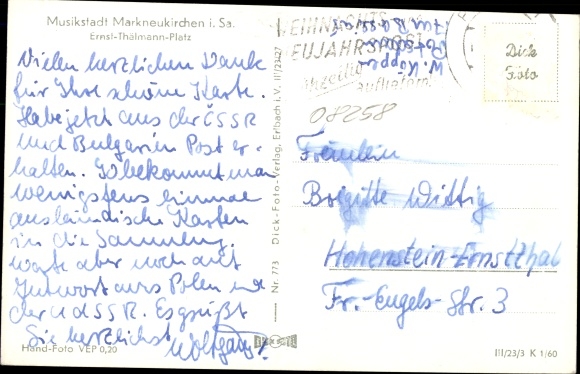 Musikstadt Markneukirchen i. Sa.
Ernst-Thälmann-Platz
Vielen herzlichen Dank
für Ihre schöne Karte.
Habe jetzt aus der ČSSR
und Bulgarien Post er-
halten. So bekommt man
wenigstens einmal
ausländische Karten
in die Sammlung.
Warte aber noch auf
Antwort aus Polen und
der UdSSR. Es grüßt
Sie herzlichst Wolfgang
Hand-Foto VEP 0,20
Nr. 773 Dick-Foto-Verlag, Erlbach i. V. III/23/27
NEUJAHRSPOST
rechtzeitig
aufliefern
W. Köppe
Dick
Foto
08258
Fräulein
Brigitte Wittig
Hohenstein-Ernstthal
Fr.-Engels-Str. 3
III/23/3 K 1/60